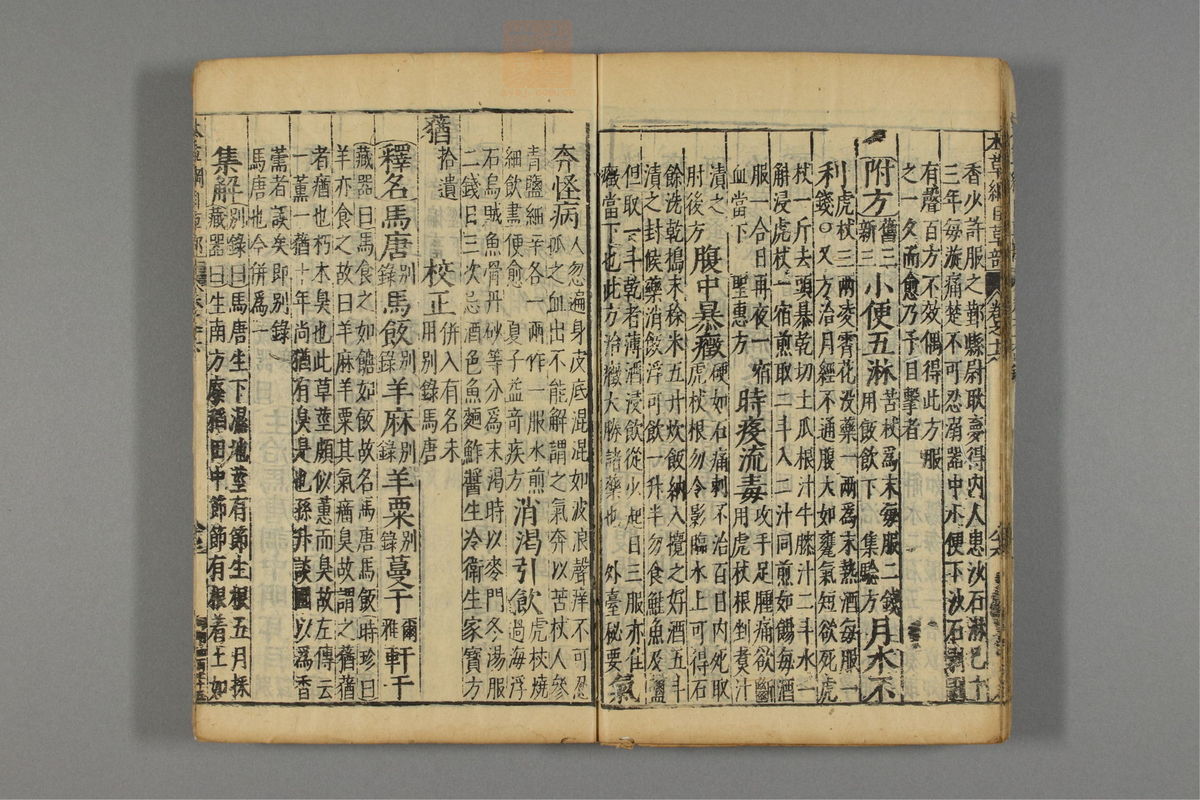 香火許服之鄞縣尉耿夢得內人患沙石淋已十
三年每漩痛楚不可忍溺器中小便下沙石剝剝
有聲百方不效偶得此方服
之一夕而愈乃予目擊者
附方舊三新三小便五淋苦杖為末每服二錢用飯飲下集驗方月水不
利虎杖三兩凌霄花沒藥一兩為末熱酒每服一
錢○又方治月經不通腹大如甕氣短欲死虎
杖一斤去頭暴乾切土瓜根汁牛膝汁二斗水一
斛浸虎杖一宿煎取二斗入二汁同煎如餳每酒
服一合日再夜一宿
血當下聖惠方時疫流毒攻手足腫痛欲斷用虎杖根剉煮汁
漬之肘後方腹中暴癥硬如石痛刺不治百日內死取虎杖根勿令影臨水上可得石
餘洗乾搗末秫米五升炊飯納入攪之好酒五斗
漬之封候藥消飯浮可飲一升半勿食鮭魚及鹽
但取一斗乾者薄酒浸飲從少起日三服亦佳
癥當下也此方治癥大勝諸藥也外臺秘要氣
奔怪病人忽遍身皮底混混如波浪聲痒不可忍抓之血出不能解謂之氣奔以苦杖人參
青鹽細辛各一兩作一服水煎
細飲盡便愈夏子益奇疾方消渴引飲虎杖燒過海浮
石烏賊魚骨丹砂等分為末渴時以麥門冬湯服
二錢日三次忌酒色魚麵鮓醬生冷衛生家寶方
蕕拾遺校正併入有名未用別錄馬唐
釋名馬唐別錄馬飯別錄羊麻別錄羊粟別錄蔓于爾雅軒于
藏器曰馬食之如糖如飯故名馬唐馬飯時珍曰
羊亦食之故曰羊麻羊粟其氣瘤臭故謂之蕕蕕
者瘤也朽木臭也此草莖頗似蕙而臭故左傳云
一薰一蕕十年尚猶有臭是也孫升談圃以為香
薷者誤矣即別錄
馬唐也今併為一
集解別錄曰馬唐生下濕地莖有節生根五月採藏器曰生南方廢稻田中節節有根着土如